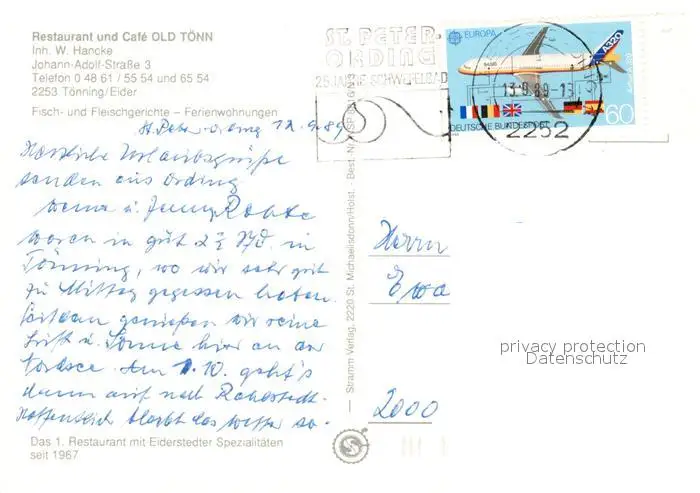 Restaurant und Café OLD TÖNN
Inh. W. Hancke
Johann-Adolf-Straße 3
Telefon 0 48 61 / 55 54 und 65 54
2253 Tönning/Eider
Fisch- und Fleischgerichte – Ferienwohnungen
St. Peter-Ording 12.9.89
Herzliche Urlaubsgrüße
senden aus Ording
u. Jenny Rohte
waren in gut 2½ Std. in
Tönning, wo wir sehr gut
zu Mittag gegessen haben.
Seitdem genießen wir reine
Luft u. Sonne hier an der
Nordsee. Am 1.10. geht's
dann auf nach
Hoffentlich bleibt das Wetter so.
Das 1. Restaurant mit Eiderstedter Spezialitäten
seit 1967
Stramm Verlag, 2220 St. Michaelisdonn/Holst. - Best.-Nr.
ST. PETER-
ORDING
25 JAHRE SCHWEFELBAD
EUROPA
A320
13.9.89-13
60
DEUTSCHE BUNDESPOST
2252
Herrn
Ewa
2000
privacy protection
Datenschutz